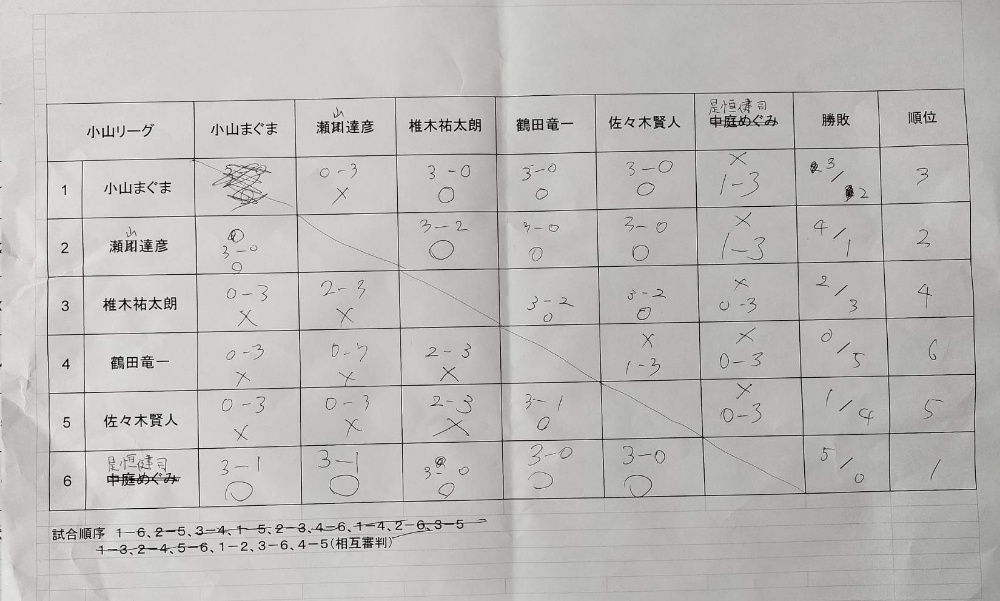 星恒健司
山
小山リーグ 小山まぐま 瀬川達彦 椎木祐太朗 鶴田竜一 佐々木賢人 中庭めぐみ 勝敗 順位
0-3 3-0 3-0 3-0 × 3
1 小山まぐま × ○ ○ ○ 1-3 / 2 3
山 ○ 3-2 3-0 3-0 × 4
2 瀬川達彦 3-0 ○ ○ ○ 1-3 / 1 2
○
0-3 2-3 3-2 3-2 × 2
3 椎木祐太朗 × × ○ ○ 0-3 / 3 4
0-3 2-3 × × 0
4 鶴田竜一 × × × 1-3 0-3 / 5 6
0-3 0-3 2-3 3-1 × 1
5 佐々木賢人 × × × ○ 0-3 / 4 5
星恒健司 3-1 3-1 3-0 3-0 3-0 5
6 中庭めぐみ ○ ○ ○ ○ ○ / 0 1
試合順序 1-6、2-5、3-4、1-5、2-3、4-6、1-4、2-6、3-5
1-3、2-4、5-6、1-2、3-6、4-5(相互審判)